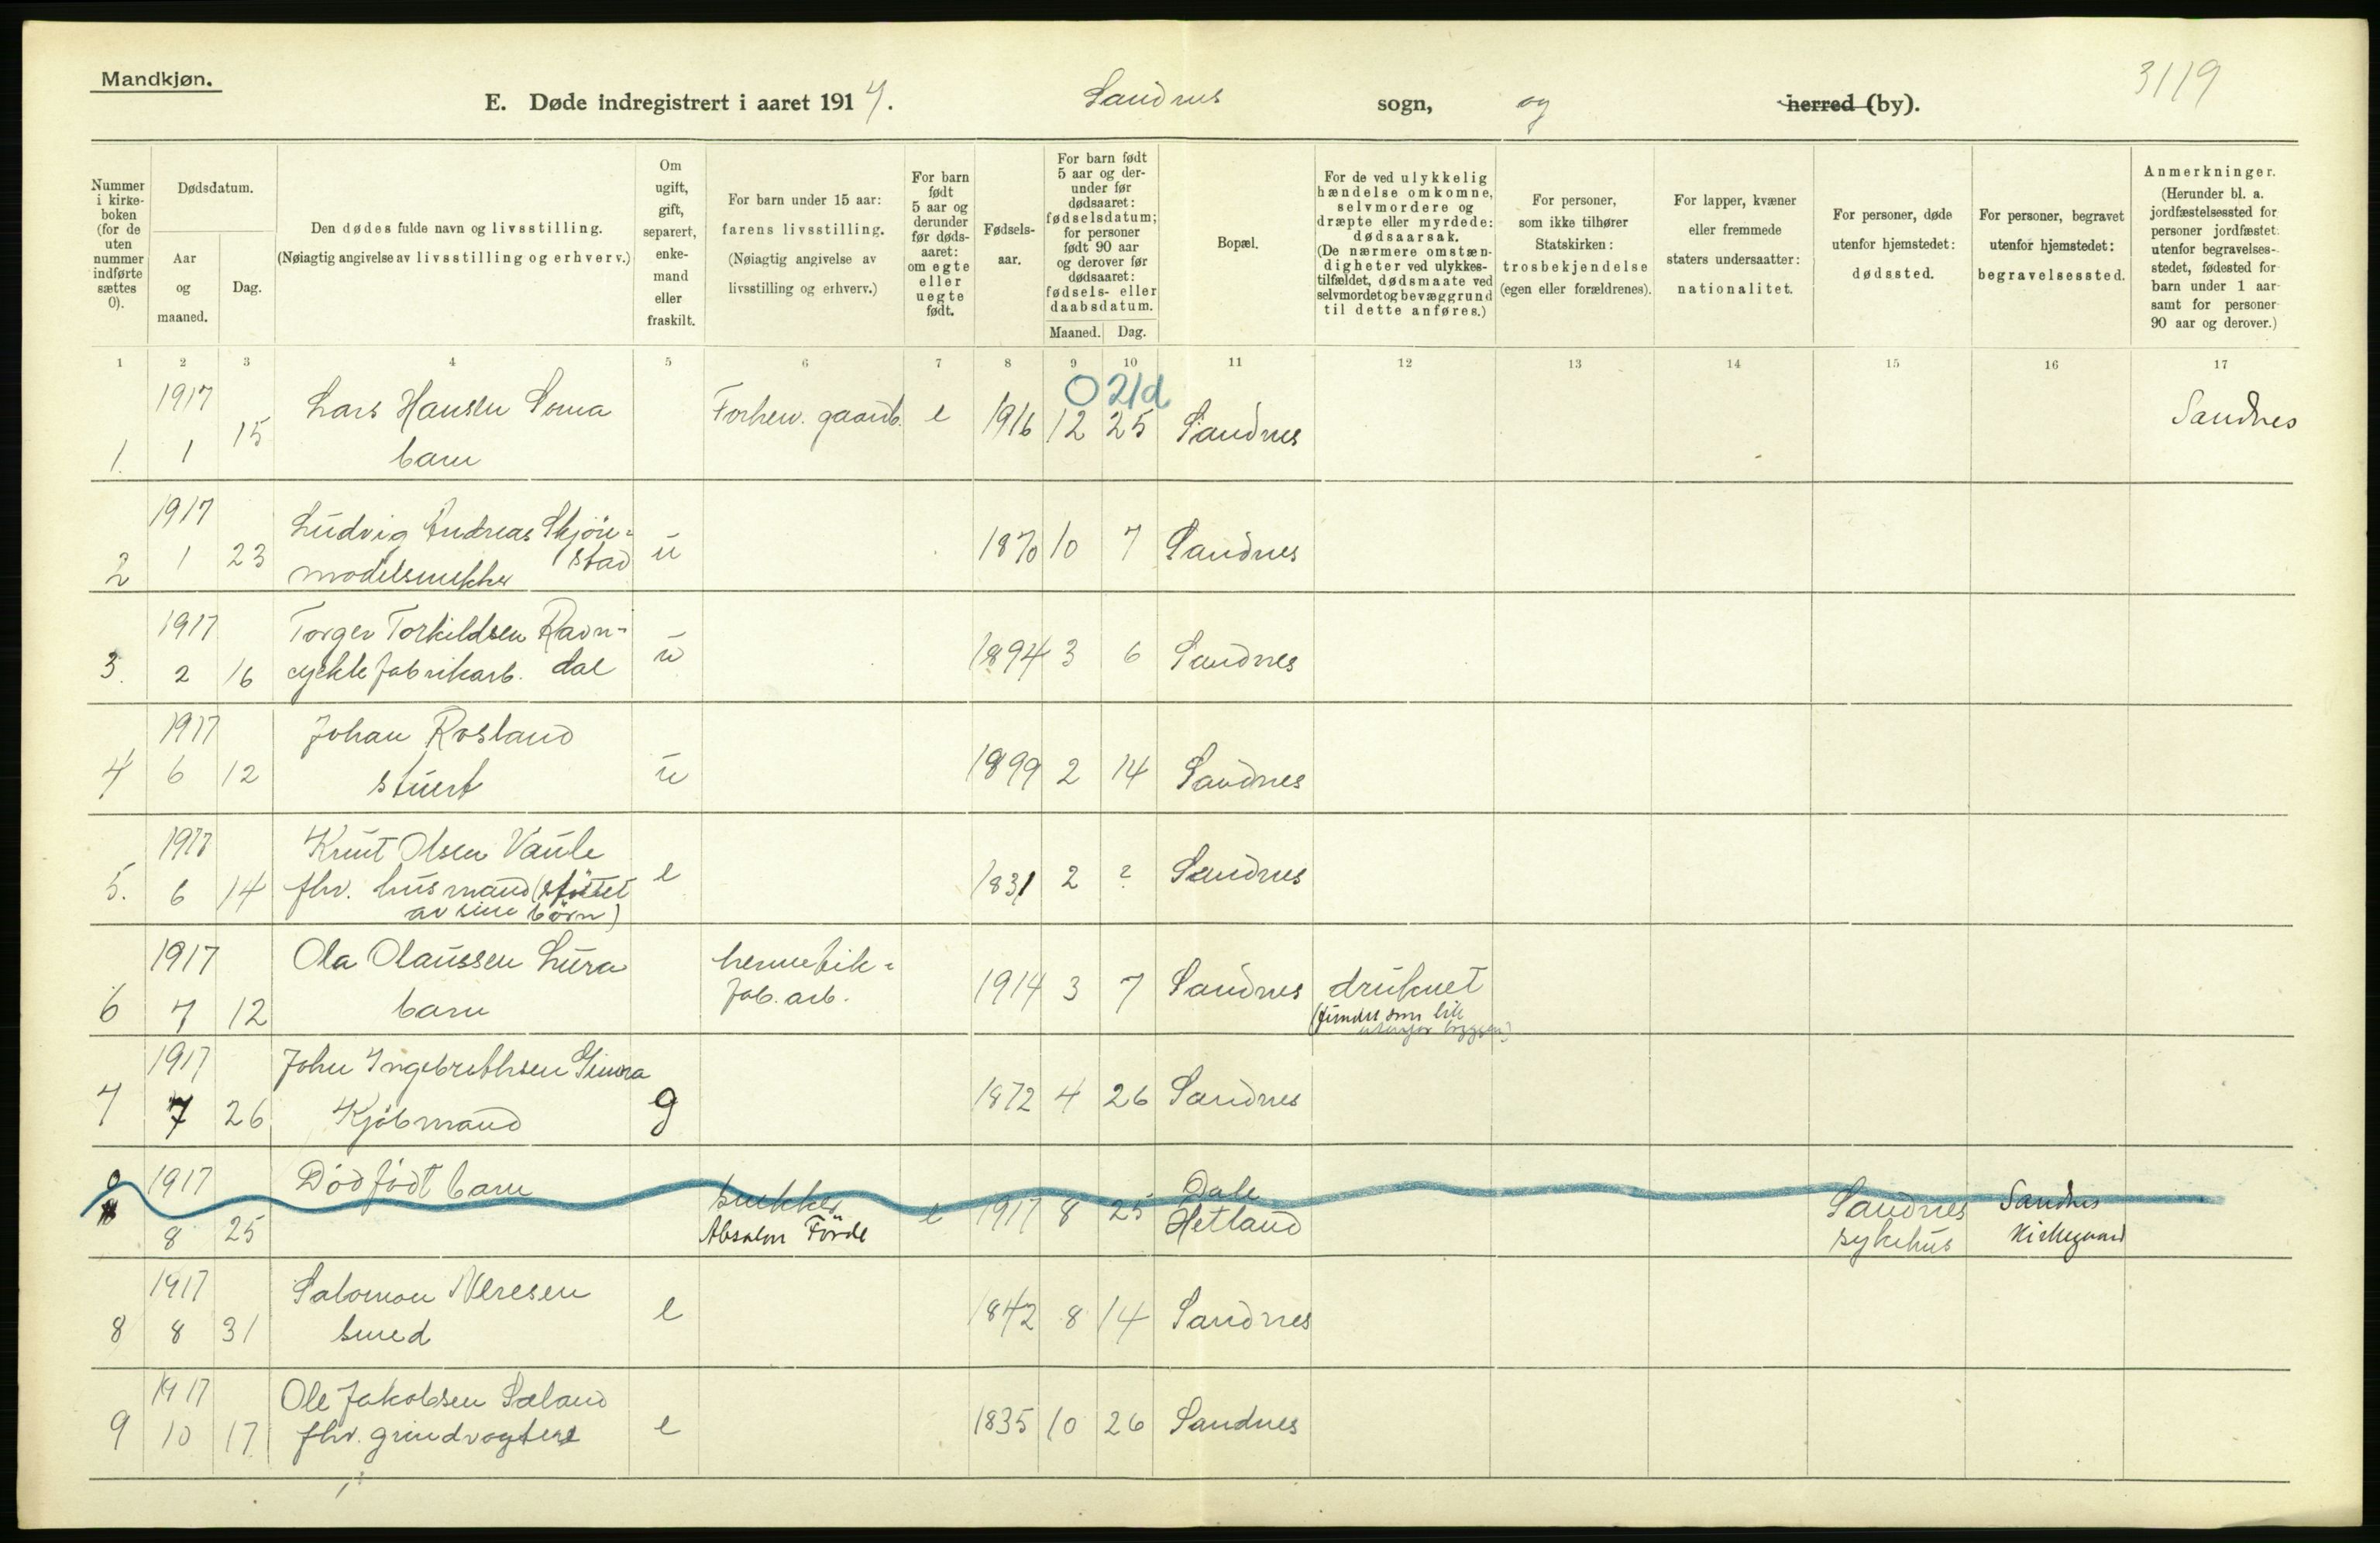 Mandkjøn.
3119
E. Døde indregistrert i aaret 1917. Sandnes sogn, og herred (by).
Nummer i kirke-boken (for de uten nummer indførte sættes 0).
Dødsdatum.
Aar og maaned.
Dag.
Den dødes fulde navn og livsstilling.
(Nøiagtig angivelse av livsstilling og erhverv.)
Om ugift, gift, separert, enke-mand eller fraskilt.
For barn under 15 aar:
farens livsstilling.
(Nøiagtig angivelse av livsstilling og erhverv.)
For barn født 5 aar og derunder før døds-aaret: om egte eller uegte født.
Fødsels-aar.
For barn født 5 aar og der-under før dødsaaret: fødselsdatum; for personer født 90 aar og derover før dødsaaret: fødsels- eller daabsdatum.
Maaned. Dag.
Bopæl.
For de ved ulykkelig hændelse omkomne, selvmordere og dræpte eller myrdede: dødsaarsak.
(De nærmere omstæn-digheter ved ulykkes-tilfældet, dødsmaate ved selvmordet og bevæggrund til dette anføres.)
For personer, som ikke tilhører Statskirken: trosbekjendelse (egen eller forældrenes).
For lapper, kvæner eller fremmede staters undersaatter: nationalitet.
For personer, døde utenfor hjemstedet: dødssted.
For personer, begravet utenfor hjemstedet: begravelsessted.
Anmerkninger.
(Herunder bl. a. jordfæstelsessted for personer jordfæstet utenfor begravelses-stedet, fødested for barn under 1 aar samt for personer 90 aar og derover.)
1 2 3 4 5 6 7 8 9 10 11 12 13 14 15 16 17
0 21d
1. 1917 1 15 Lars Hansen Soma Forhenv. gaardb. e 1916 12 25 Sandnes Sandnes
barn
2 1917 1 23 Ludvig Andreas Skjöre-
stad u 1870 10 7 Sandnes
modelsnekker
3. 1917 2 16 Torger Torkildsen Ravn-
cyckle fabrikarb. dal u 1894 3 6 Sandnes
4 1917 6 12 Johan Rosland
stuert u 1899 2 14 Sandnes
5. 1917 6 14 Knut Olsen Vaule
fhv. husmand (støttet e 1831 2 ? Sandnes
av sine börn)
6 1917 7 12 Ola Olaussen Lura hermetik-
barn fab. arb. 1914 3 7 Sandnes druknet
(fundet som lik
utenfor bryggen)
7 1917 7 26 John Ingebrethsen
Kjöbmand g 1872 4 26 Sandnes
0 1917 8 25 Dödfödt barn snekker e 1917 8 25 Dale
Absalon Förde Hetland Sandnes sykehus Sandnes Kirkegaard
8 1917 8 31 Salomon
smed e 1842 8 14 Sandnes
9 1917 10 17 Ole Jakobsen Sæland
fhv. grindvogter e 1835 10 26 Sandnes